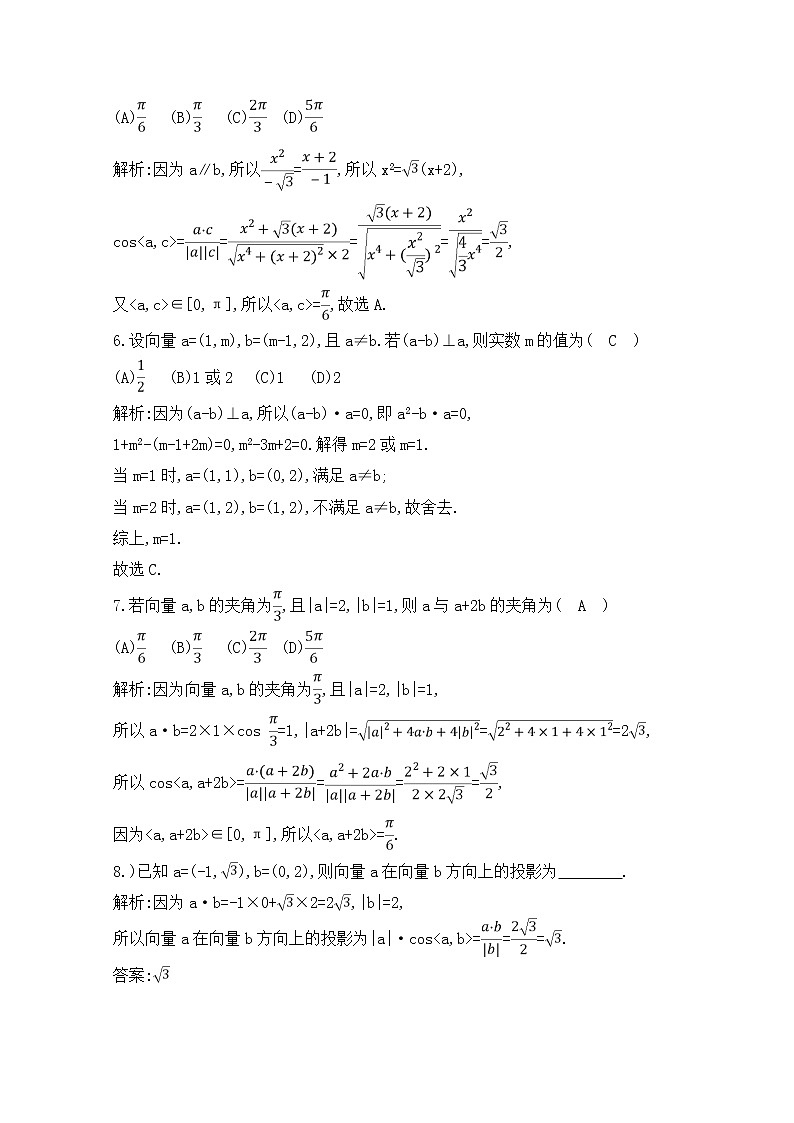 (A)π/6 (B)π/3 (C)2π/3 (D)5π/6
解析:因为a∥b,所以x²/(-√3)=(x+2)/(-1),所以x²=√3(x+2),
cos<a,c>=a·c/(|a||c|)=(x²+√3(x+2))/(√(x⁴+(x+2)²)×2)=√3(x+2)/√(x⁴+(x²/√3)²)=x²/√(4/3x⁴)=√3/2,
又<a,c>∈[0,π],所以<a,c>=π/6,故选A.
6.设向量a=(1,m),b=(m-1,2),且a≠b.若(a-b)⊥a,则实数m的值为( C )
(A)1/2 (B)1或2 (C)1 (D)2
解析:因为(a-b)⊥a,所以(a-b)·a=0,即a²-b·a=0,
1+m²-(m-1+2m)=0,m²-3m+2=0.解得m=2或m=1.
当m=1时,a=(1,1),b=(0,2),满足a≠b;
当m=2时,a=(1,2),b=(1,2),不满足a≠b,故舍去.
综上,m=1.
故选C.
7.若向量a,b的夹角为π/3,且|a|=2,|b|=1,则a与a+2b的夹角为( A )
(A)π/6 (B)π/3 (C)2π/3 (D)5π/6
解析:因为向量a,b的夹角为π/3,且|a|=2,|b|=1,
所以a·b=2×1×cos π/3=1,|a+2b|=√(|a|²+4a·b+4|b|²)=√(2²+4×1+4×1²)=2√3,
所以cos<a,a+2b>=a·(a+2b)/(|a||a+2b|)=(a²+2a·b)/(|a||a+2b|)=(2²+2×1)/(2×2√3)=√3/2,
因为<a,a+2b>∈[0,π],所以<a,a+2b>=π/6.
8.)已知a=(-1,√3),b=(0,2),则向量a在向量b方向上的投影为________.
解析:因为a·b=-1×0+√3×2=2√3,|b|=2,
所以向量a在向量b方向上的投影为|a|·cos<a,b>=a·b/|b|=2√3/2=√3.
答案:√3